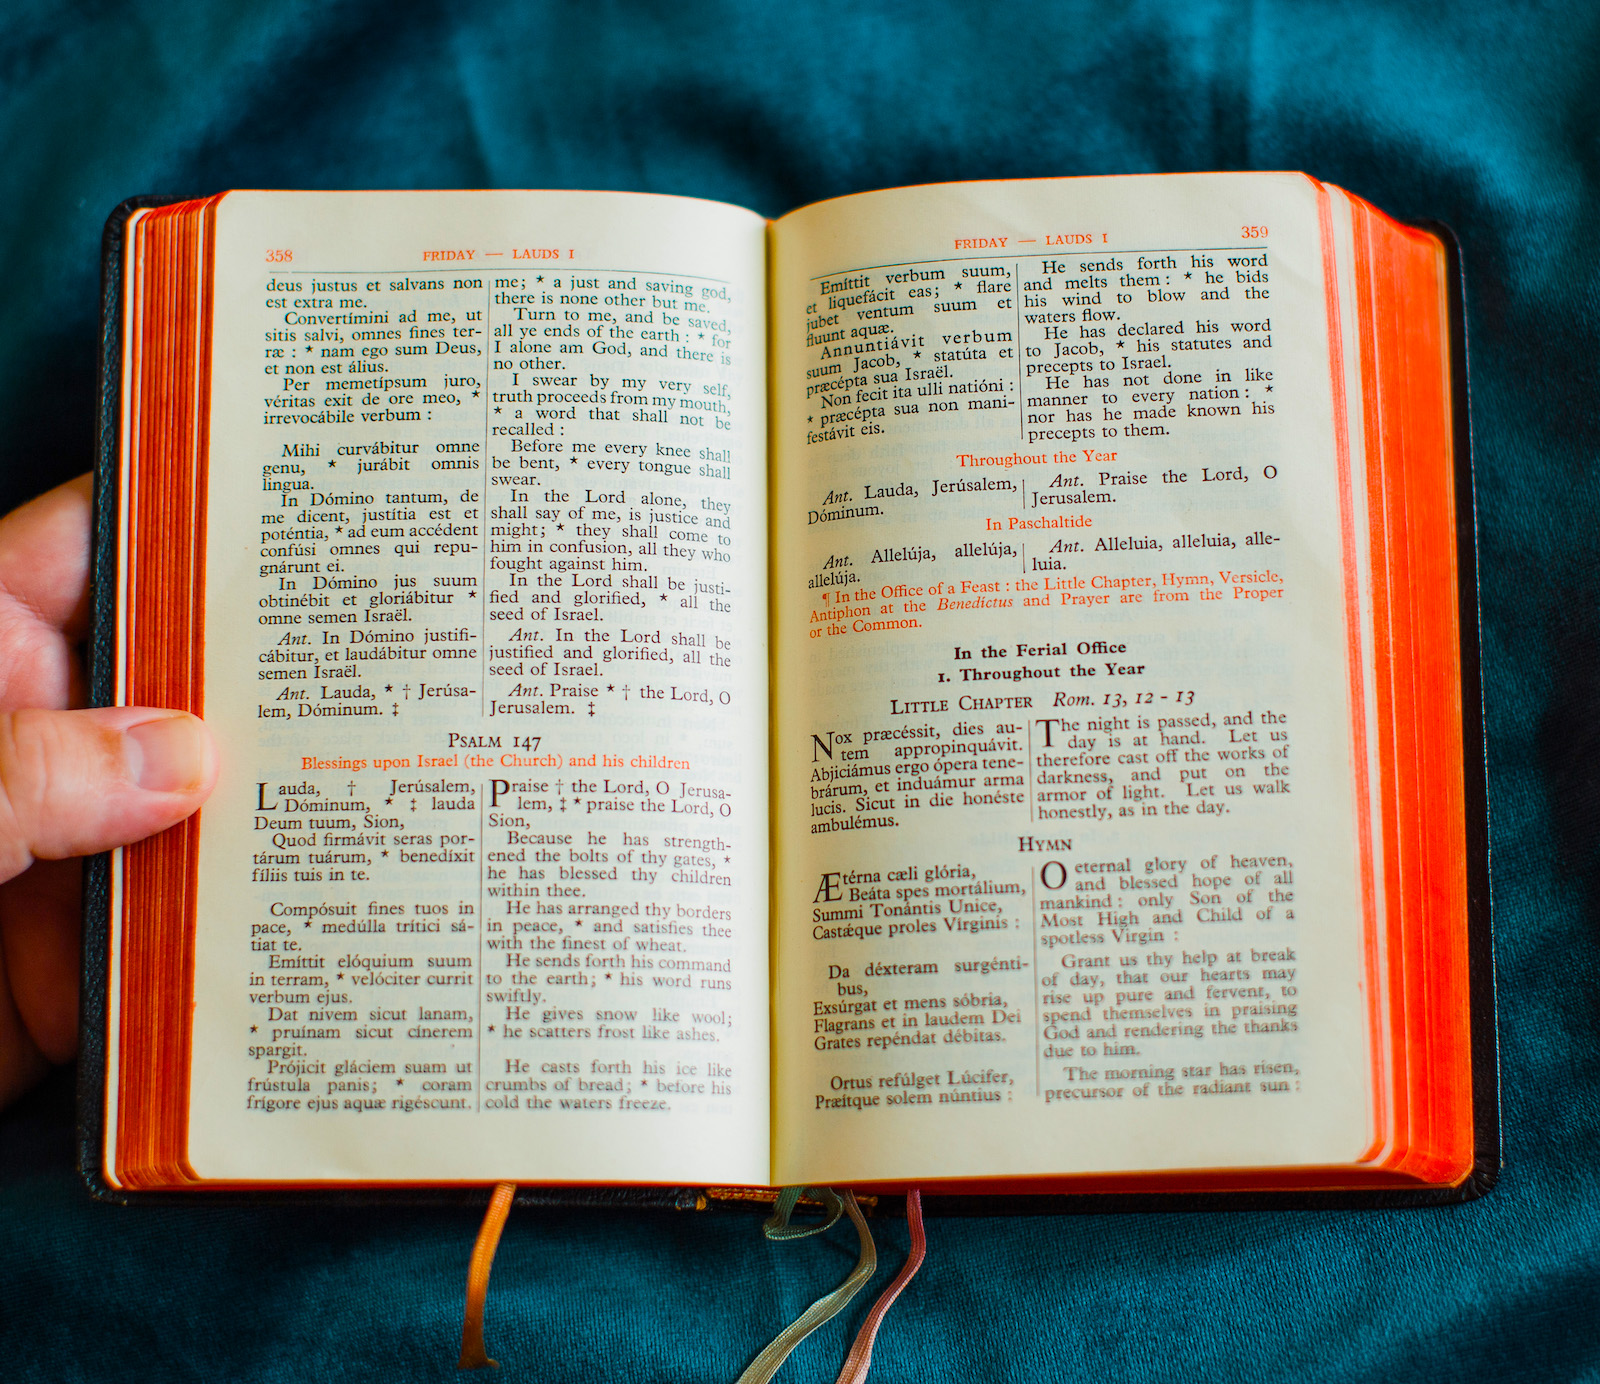 358
FRIDAY — LAUDS I
deus justus et salvans non
est extra me.
Convertímini ad me, ut
sitis salvi, omnes fines ter-
ræ : * nam ego sum Deus,
et non est álius.
Per memetípsum juro,
véritas exit de ore meo, *
irrevocábile verbum :
Mihi curvábitur omne
genu, * jurábit omnis
lingua.
In Dómino tantum, de
me dicent, justítia est et
poténtia, * ad eum accédent
confúsi omnes qui repu-
gnárunt ei.
In Dómino jus suum
obtinébit et gloriábitur *
omne semen Israël.
Ant. In Dómino justifi-
cábitur, et laudábitur omne
semen Israël.
Ant. Lauda, * † Jerúsa-
lem, Dóminum. ‡
me; * a just and saving god,
there is none other but me.
Turn to me, and be saved,
all ye ends of the earth : * for
I alone am God, and there is
no other.
I swear by my very self,
truth proceeds from my mouth,
* a word that shall not be
recalled :
Before me every knee shall
be bent, * every tongue shall
swear.
In the Lord alone, they
shall say of me, is justice and
might; * they shall come to
him in confusion, all they who
fought against him.
In the Lord shall be justi-
fied and glorified, * all the
seed of Israel.
Ant. In the Lord shall be
justified and glorified, all the
seed of Israel.
Ant. Praise * † the Lord, O
Jerusalem. ‡
PSALM 147
Blessings upon Israel (the Church) and his children
Lauda, † Jerúsalem,
Dóminum, * ‡ lauda
Deum tuum, Sion,
Quod firmávit seras por-
tárum tuárum, * benedíxit
fíliis tuis in te.
Compósuit fines tuos in
pace, * medúlla trítici sá-
tiat te.
Emíttit elóquium suum
in terram, * velóciter currit
verbum ejus.
Dat nivem sicut lanam,
* pruínam sicut cínerem
spargit.
Prójicit gláciem suam ut
frústula panis; * coram
frígore ejus aquæ rigéscunt.
Praise † the Lord, O Jerusa-
lem, ‡ * praise the Lord, O
Sion,
Because he has strength-
ened the bolts of thy gates, *
he has blessed thy children
within thee.
He has arranged thy borders
in peace, * and satisfies thee
with the finest of wheat.
He sends forth his command
to the earth; * his word runs
swiftly.
He gives snow like wool;
* he scatters frost like ashes.
He casts forth his ice like
crumbs of bread; * before his
cold the waters freeze.
FRIDAY — LAUDS I
359
Emíttit verbum suum,
et liquefácit eas; * flare
jubet ventum suum et
fluunt aquæ.
Annuntiávit verbum
suum Jacob, * statúta et
præcépta sua Israël.
Non fecit ita ulli natióni :
* præcépta sua non mani-
festávit eis.
He sends forth his word
and melts them : * he bids
his wind to blow and the
waters flow.
He has declared his word
to Jacob, * his statutes and
precepts to Israel.
He has not done in like
manner to every nation : *
nor has he made known his
precepts to them.
Throughout the Year
Ant. Lauda, Jerúsalem,
Dóminum.
Ant. Praise the Lord, O
Jerusalem.
In Paschaltide
Ant. Allelúja, allelúja,
allelúja.
Ant. Alleluia, alleluia, alle-
luia.
¶ In the Office of a Feast : the Little Chapter, Hymn, Versicle,
Antiphon at the Benedíctus and Prayer are from the Proper
or the Common.
In the Ferial Office
1. Throughout the Year
LITTLE CHAPTER Rom. 13, 12 - 13
Nox præcéssit, dies au-
tem appropinquávit.
Abjiciámus ergo ópera tene-
brárum, et induámur arma
lucis. Sicut in die honéste
ambulémus.
The night is passed, and the
day is at hand. Let us
therefore cast off the works of
darkness, and put on the
armor of light. Let us walk
honestly, as in the day.
HYMN
Ætérna cæli glória,
Beáta spes mortálium,
Summi Tonántis Unice,
Castǽque proles Vírginis :
Da déxteram surgénti-
bus,
Exsúrgat et mens sóbria,
Flagrans et in laudem Dei
Grates repéndat débitas.
Ortus refúlget Lúcifer,
Præítque solem núntius :
O eternal glory of heaven,
and blessed hope of all
mankind : only Son of the
Most High and Child of a
spotless Virgin :
Grant us thy help at break
of day, that our hearts may
rise up pure and fervent, to
spend themselves in praising
God and rendering the thanks
due to him.
The morning star has risen,
precursor of the radiant sun :